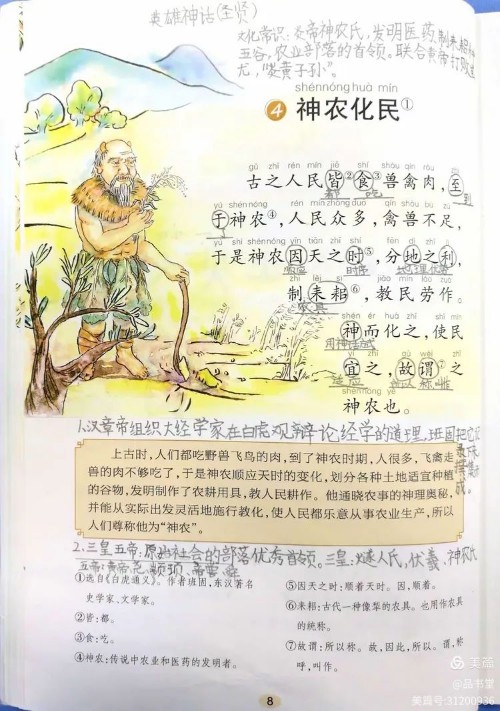 英雄神话(圣贤)
文化常识:炎帝神农氏,发明医药,制耒耜种
五谷,农业部落的首领。联合黄帝打败蚩
尤,“炎黄子孙”。
shén nóng huà mín
4 神农化民①
gǔ zhī rén mín jiē shí shòu qín ròu zhì
古之人民皆②食③兽禽肉,至
都 吃 到
yú shén nóng rén mín zhòng duō qín shòu bù zú
于神农④,人民众多,禽兽不足,
yú shì shén nóng yīn tiān zhī shí fēn dì zhī lì
于是神农因天之时⑤,分地之利,
顺应 时序
zhì lěi sì jiào mín láo zuò
制耒耜⑥,教民劳作。
农具
shén ér huà zhī shǐ mín
神而化之,使民
yí zhī gù wèi zhī
宜之,故谓⑦之
适应 所以 称唯
shén nóng yě
神农也。
1.汉章帝组织大经学家在白虎观辩论经学的道理,班固把它记
上古时,人们都吃野兽飞鸟的肉,到了神农时期,人很多,飞禽走
兽的肉不够吃了,于是神农顺应天时的变化,划分各种土地适宜种植
的谷物,发明制作了农耕用具,教人民耕作。他通晓农事的神理奥秘,
并能从实际出发灵活地施行教化,使人民都乐意从事农业生产,所以
人们尊称他为“神农”。
2.三皇五帝:原始社会的部落优秀首领。三皇:燧人氏,伏羲,神农氏
五帝:黄帝,尧,颛顼,帝喾,舜
①选自《白虎通义》。作者班固,东汉著名
史学家、文学家。
②皆:都。
③食:吃。
④神农:传说中农业和医药的发明者。
⑤因天之时:顺着天时。因,顺着。
⑥耒耜:古代一种像犁的农具。也用作农具
的统称。
⑦故谓:所以称。故,因此,所以。谓,称
呼,叫作。
8
美篇
@品书堂
美篇号:31200936